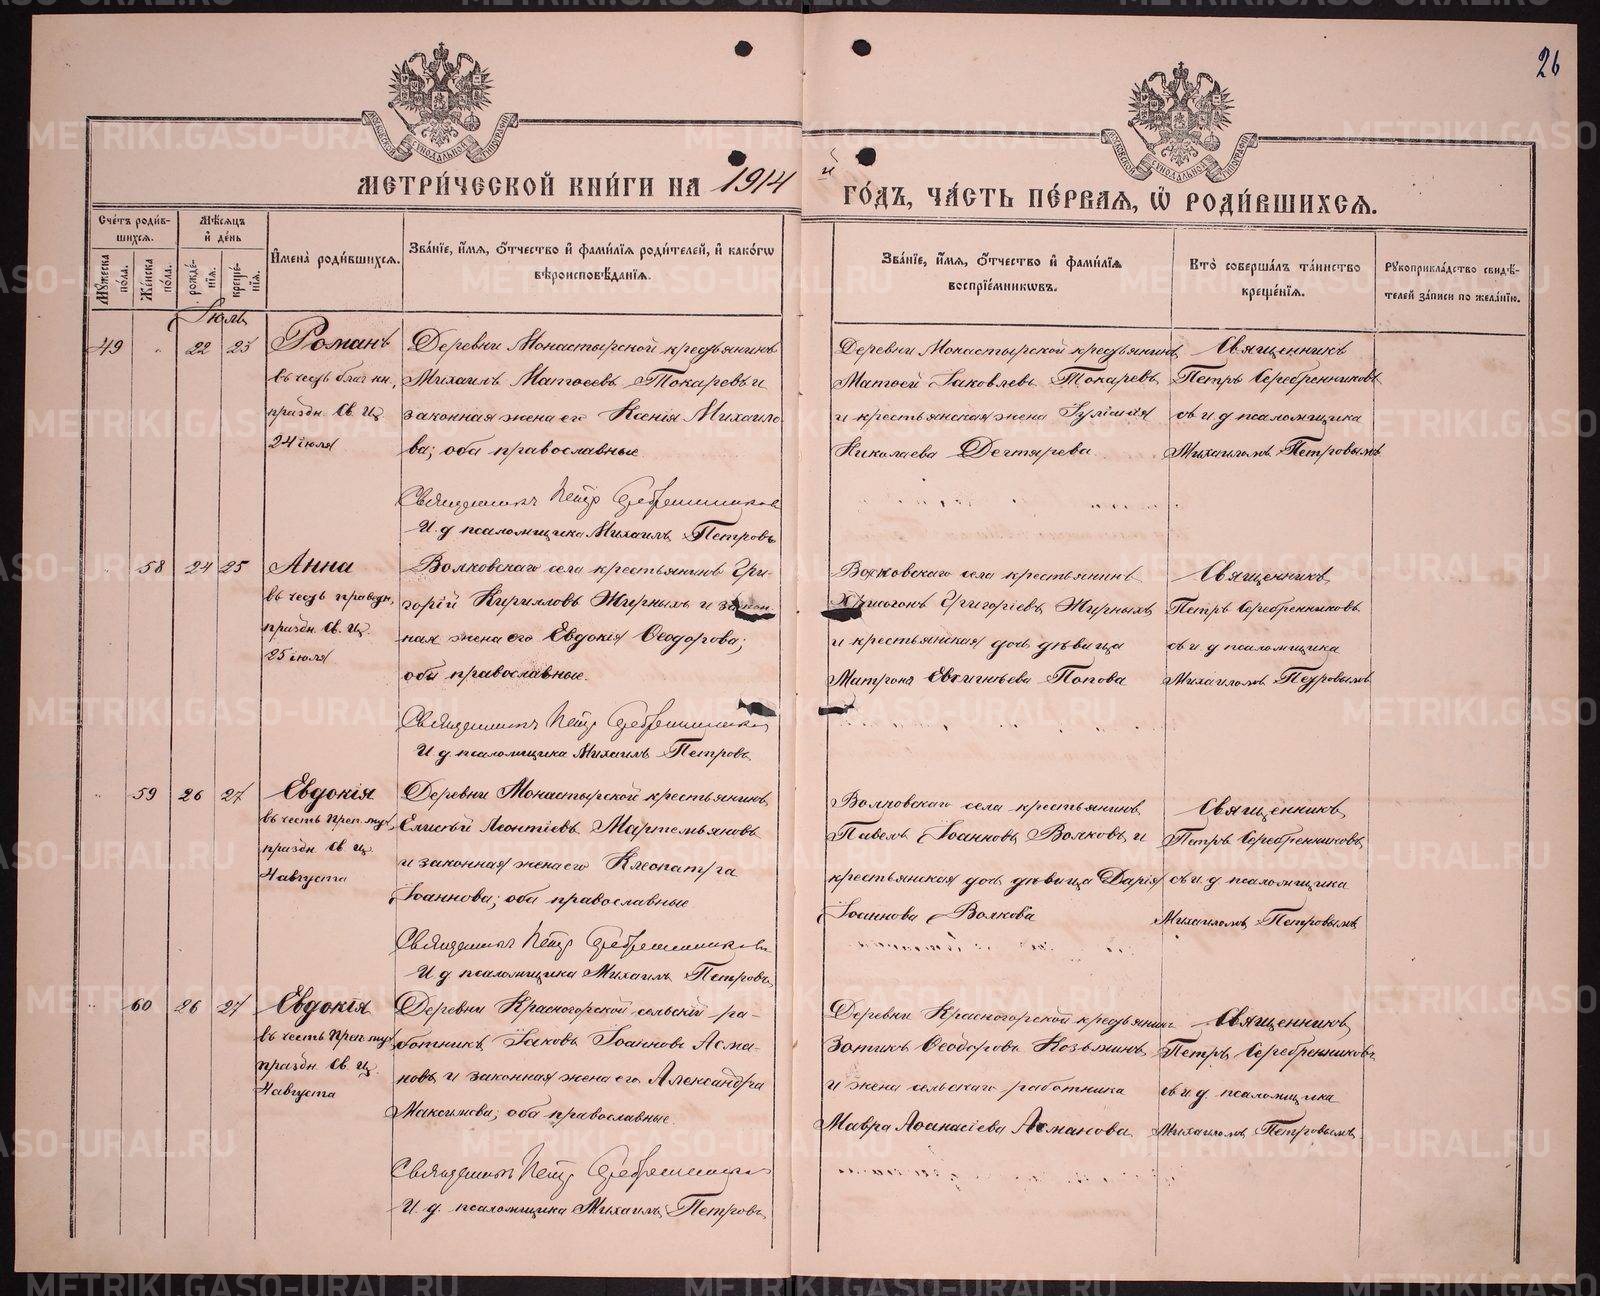 26
МОСКОВСКОЙ СѴНОДАЛЬНОЙ ТИПОГРАФІИ
МОСКОВСКОЙ СѴНОДАЛЬНОЙ ТИПОГРАФІИ
МЕТРИ́ЧЕСКОЙ КНИ́ГИ НА 1914 й ГО́ДЪ, ЧА́СТЬ ПЕ́РВАЯ, Ѡ҆ РОДИ́ВШИХСЯ.
Счетъ роди́вшихся.
Мужеска пола.
Женска пола.
Мѣсяцъ и҆ день
рождені́я.
крещені́я.
И҆мена̀ роди́вшихся.
Зва́нїе, и҆́мя, ѻ҆́тчество и҆ фами́лїя роди́телей, и҆ како́гѡ вѣроисповѣ́данїя.
Зва́нїе, и҆́мя, ѻ҆́тчество и҆ фами́лїя воспрїе́мникѡвъ.
Кто̀ соверша́лъ та́инство креще́нїя.
Рукоприкла́дство свидѣ́телей за́писи по жела́нїю.
Іюль
49 22 23
Романъ
въ честь благ. кн.
праздн. Св. Ц.
24 іюля
Деревни Монастырской крестьянинъ
Михаилъ Матѳеевъ Токаревъ и
законная жена его Ксенія Михайло
ва; оба православные
Священникъ Петр Серебренников
И. д. псаломщика Михаилъ Петровъ
Деревни Монастырской крестьянинъ
Матѳей Іаковлевъ Токаревъ
и крестьянская жена Іуліанія
Николаева Дегтярева
Священникъ
Петръ Серебренниковъ
съ и. д. псаломщика
Михаиломъ Петровымъ
58 24 25
Анна
въ честь праведн.
праздн. Св. Ц.
25 іюля
Волковскаго села крестьянинъ Гри-
горій Кирилловъ Жирныхъ и закон
ная жена его Евдокія Ѳеодорова;
оба православные.
Священникъ Петр Серебренников
И. д. псаломщика Михаилъ Петровъ
Волковскаго села крестьянинъ
Хрисогонъ Григоріевъ Жирныхъ
и крестьянская дочь дѣвица
Матрона Евгигнѣева Попова
Священникъ
Петръ Серебренниковъ
съ и. д. псаломщика
Михаиломъ Петровымъ
59 26 27
Евдокія
въ честь Преп. муч.
праздн. Св. Ц.
4 августа
Деревни Монастырской крестьянинъ
Елисѣй Леонтіевъ Мартемьяновъ
и законная жена его Клеопатра
Іоаннова; оба православные
Священникъ Петр Серебренниковъ
И. д. псаломщика Михаилъ Петровъ
Волковскаго села крестьянинъ
Павелъ Іоанновъ Волковъ и
крестьянская дочь дѣвица Дарія
Іоаннова Волкова
Священникъ
Петръ Серебренниковъ
съ и. д. псаломщика
Михаиломъ Петровымъ
60 26 27
Евдокія
въ честь Преп. муч.
праздн. Св. Ц.
4 августа
Деревни Красногорской сельскій ра-
ботникъ Іаковъ Іоанновъ Асма-
новъ и законная жена его Александра
Максимова; оба православные.
Священникъ Петр Серебренников
И. д. псаломщика Михаилъ Петровъ
Деревни Красногорской крестьянинъ
Зотикъ Ѳеодоровъ Козьминъ
и жена сельскаго работника
Мавра Аѳанасіева Асманова
Священникъ
Петръ Серебренниковъ
съ и. д. псаломщика
Михаиломъ Петровымъ
METRIKI.GASO-URAL.RU